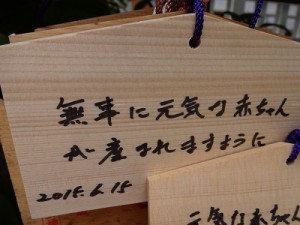 無事に元気な赤ちゃん
が産まれますように
2015.6.15
元気な赤ちゃん